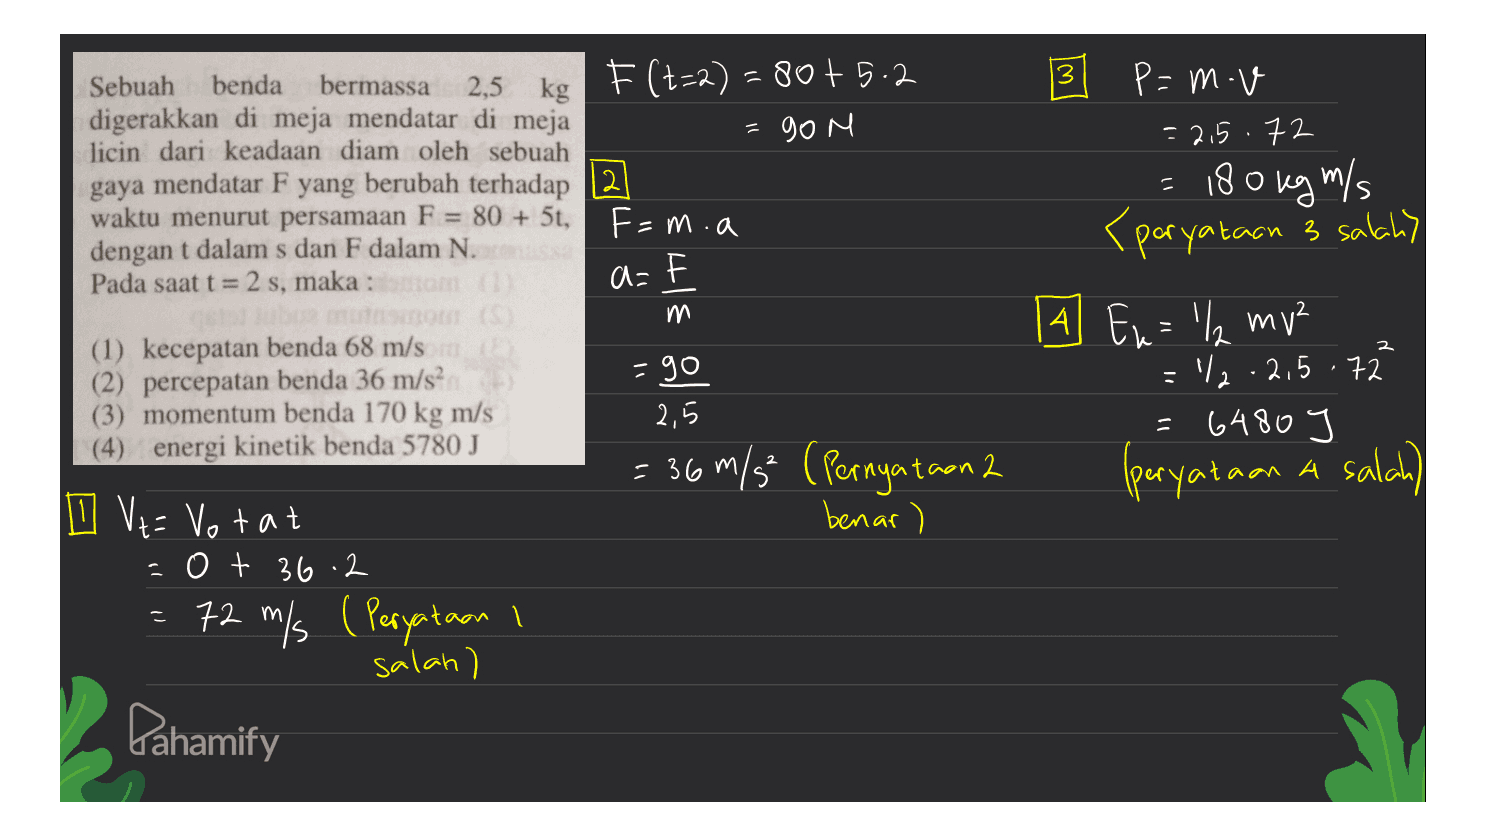 Sebuah benda bermassa 2,5 kg
digerakkan di meja mendatar di meja
licin dari keadaan diam oleh sebuah
gaya mendatar F yang berubah terhadap
waktu menurut persamaan F = 80 + 5t,
dengan t dalam s dan F dalam N.
Pada saat t = 2 s, maka :
(1) kecepatan benda 68 m/s
(2) percepatan benda 36 m/s²
(3) momentum benda 170 kg m/s
(4) energi kinetik benda 5780 J
1 Vt = Vo + at
= 0 + 36 . 2
= 72 m/s (Peryataan 1
salah)
F (t=2) = 80 + 5.2
= 90 N
2
F = m . a
a = F
m
= 90
2,5
= 36 m/s² (Pernyataan 2
benar)
3 P = m . v
= 2,5 . 72
= 180 kg m/s
(peryataan 3 salah)
4 Ek = 1/2 mv²
= 1/2 . 2,5 . 72²
= 6480 J
(peryataan 4 salah)
Pahamify